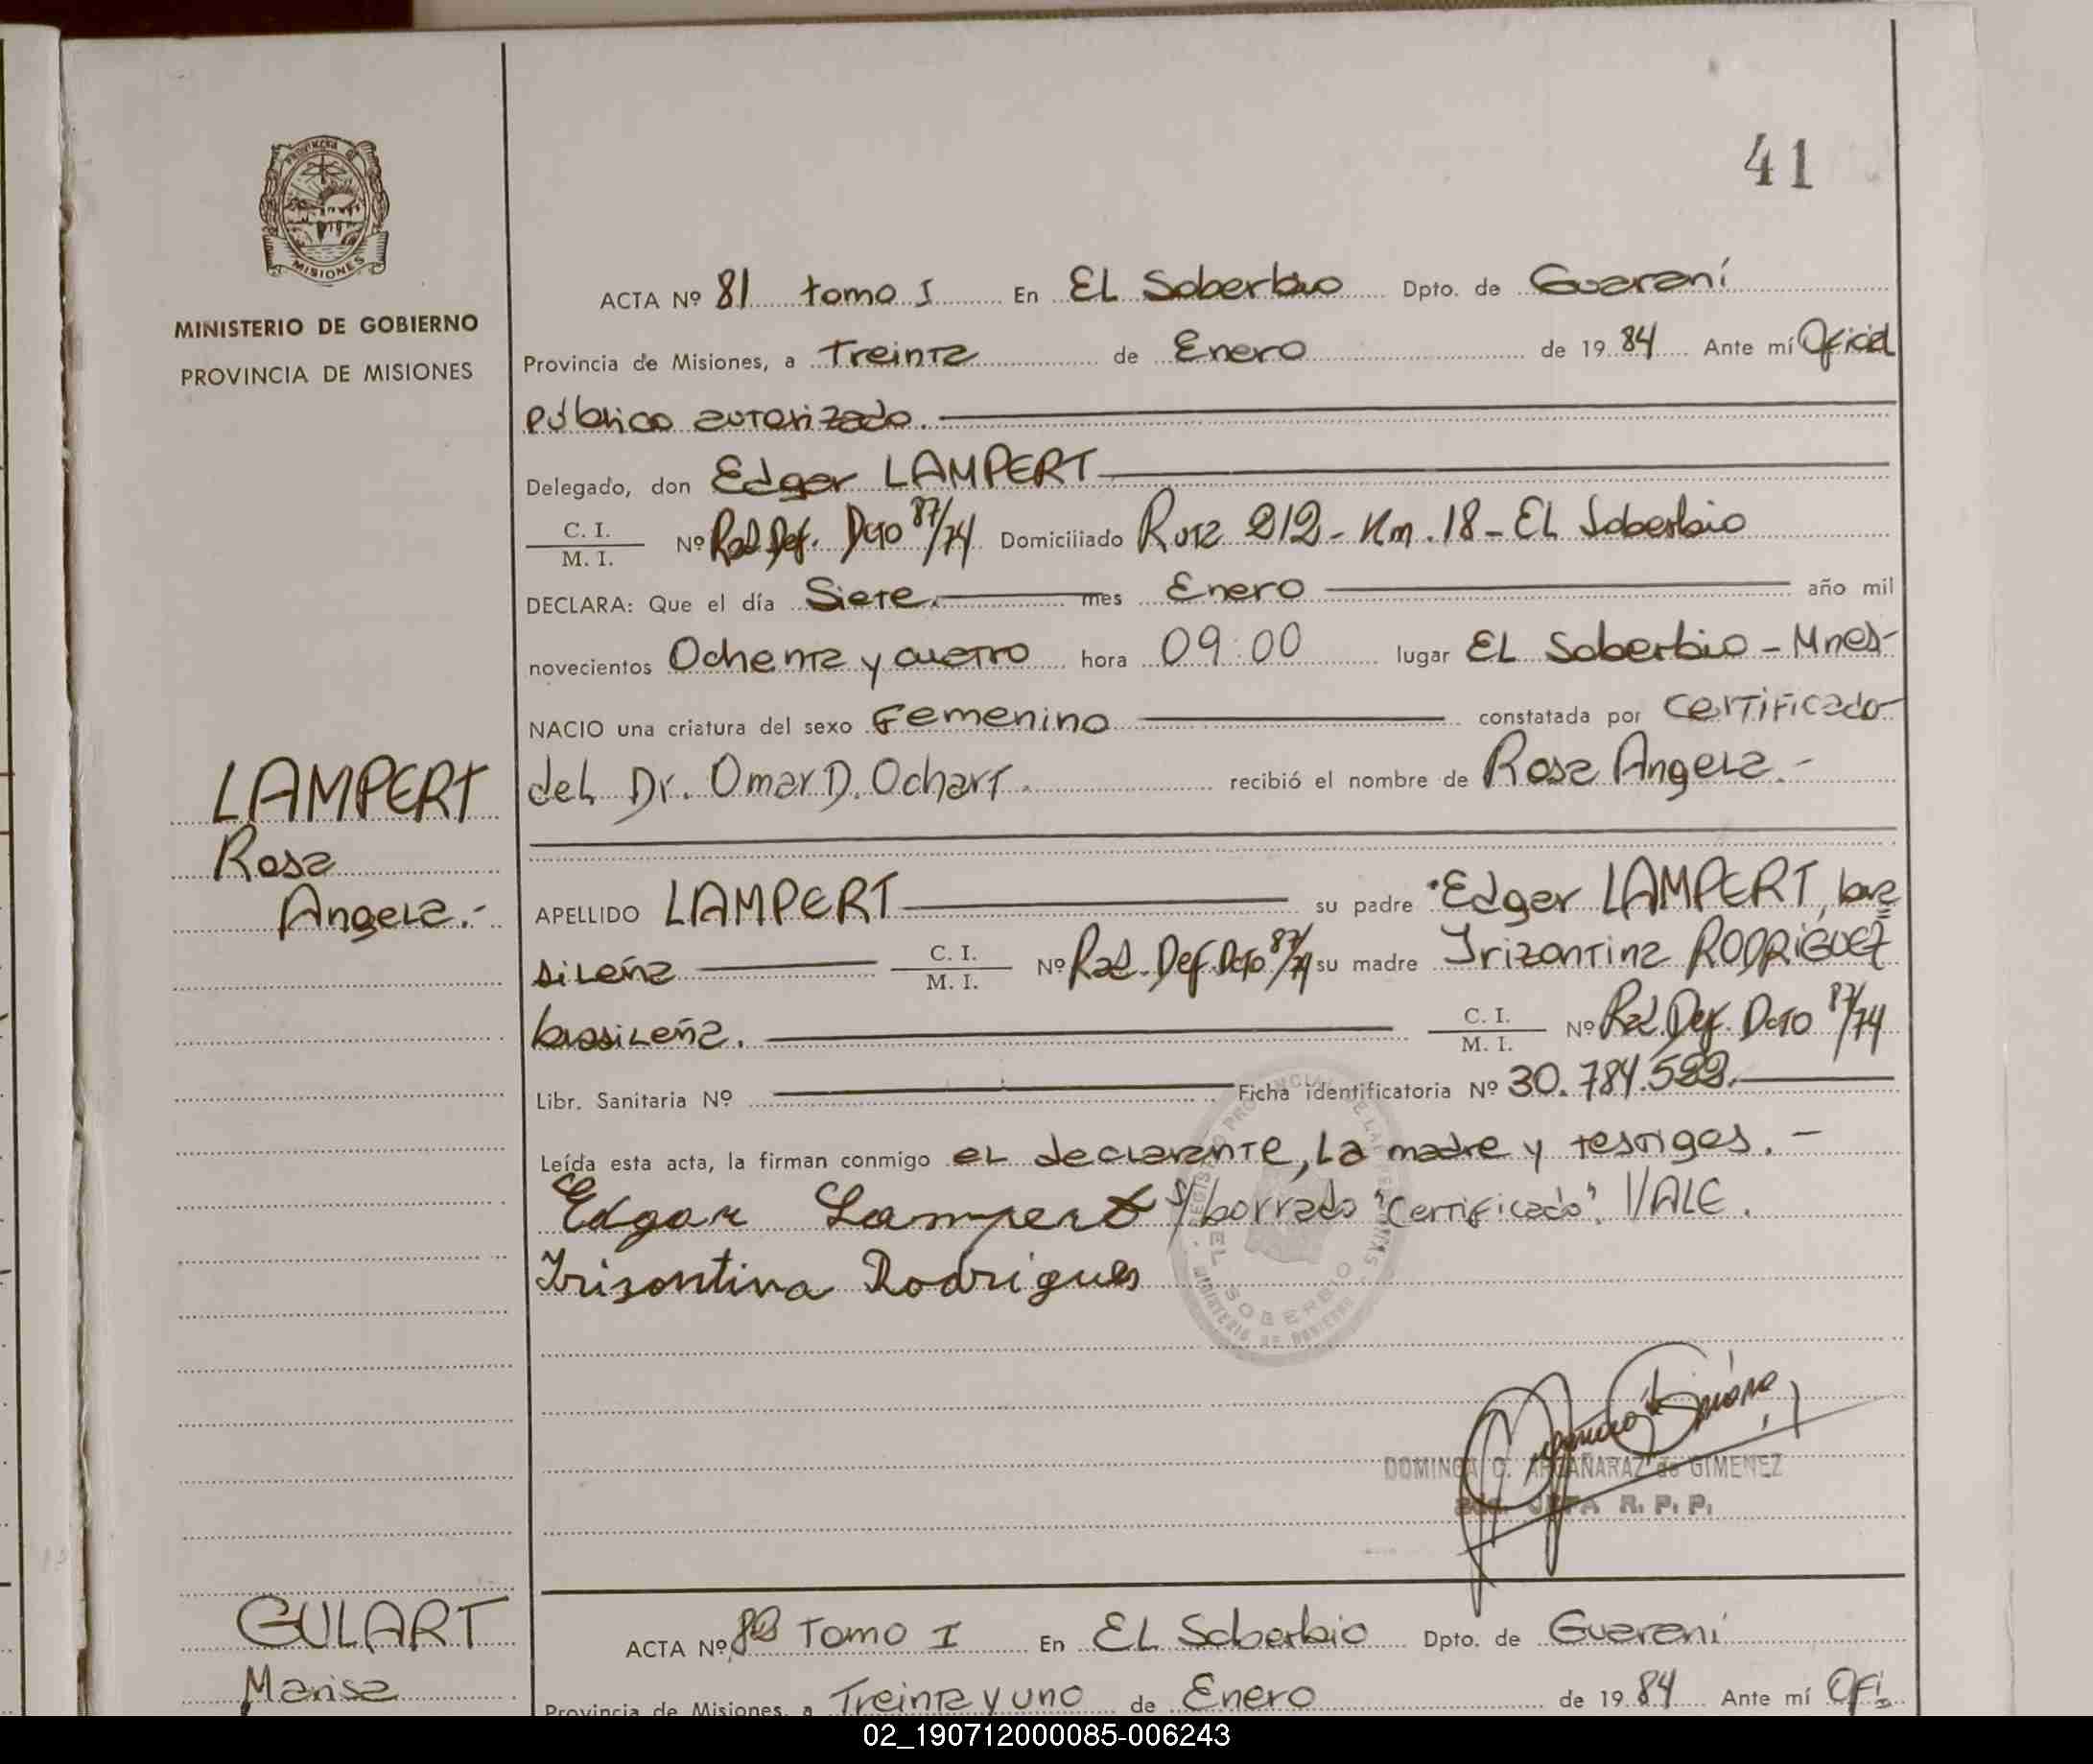 41
PROVINCIA DE
MISIONES
MINISTERIO DE GOBIERNO
PROVINCIA DE MISIONES
ACTA Nº 81 tomo I En EL Soberbio Dpto. de Guaraní
Provincia de Misiones, a Treinta de Enero de 19 84 Ante mí Oficial
público autorizado.
Delegado, don Edgar LAMPERT
C. I. / M. I. Nº Rad. Def. Dcto 87/74 Domiciliado Ruta 212 - Km. 18 - EL Soberbio
DECLARA: Que el día Siete. mes Enero año mil
novecientos Ochenta y cuatro hora 09:00 lugar EL Soberbio - Mnes-
NACIO una criatura del sexo Femenino constatada por certificado
del Dr. Omar D. Ochart. recibió el nombre de Rosa Angela.-
LAMPERT
Rosa
Angela.-
APELLIDO LAMPERT su padre Edgar LAMPERT, bra
sileña C. I. / M. I. Nº Rad. Def. Dcto. 87/74 su madre Irizontina RODRIGUEZ
brasileña. C. I. / M. I. Nº Rad. Def. Dcto 87/74
Libr. Sanitaria Nº Ficha identificatoria Nº 30.784.522.
Leída esta acta, la firman conmigo el declarante, la madre y testigos. -
Edgar Lampert s/borrado "certificado". VALE.
Irisontina Rodrigues
EL SOBERBIO
MINISTERIO DE GOBIERNO
DOMINGA C. ARGAÑARAZ de GIMENEZ
JEFA R. P. P.
GULART
Marisa
ACTA Nº 82 Tomo I En EL Soberbio Dpto. de Guaraní
Provincia de Misiones, a Treinta y uno de Enero de 19 84 Ante mí Ofi
02_190712000085-006243